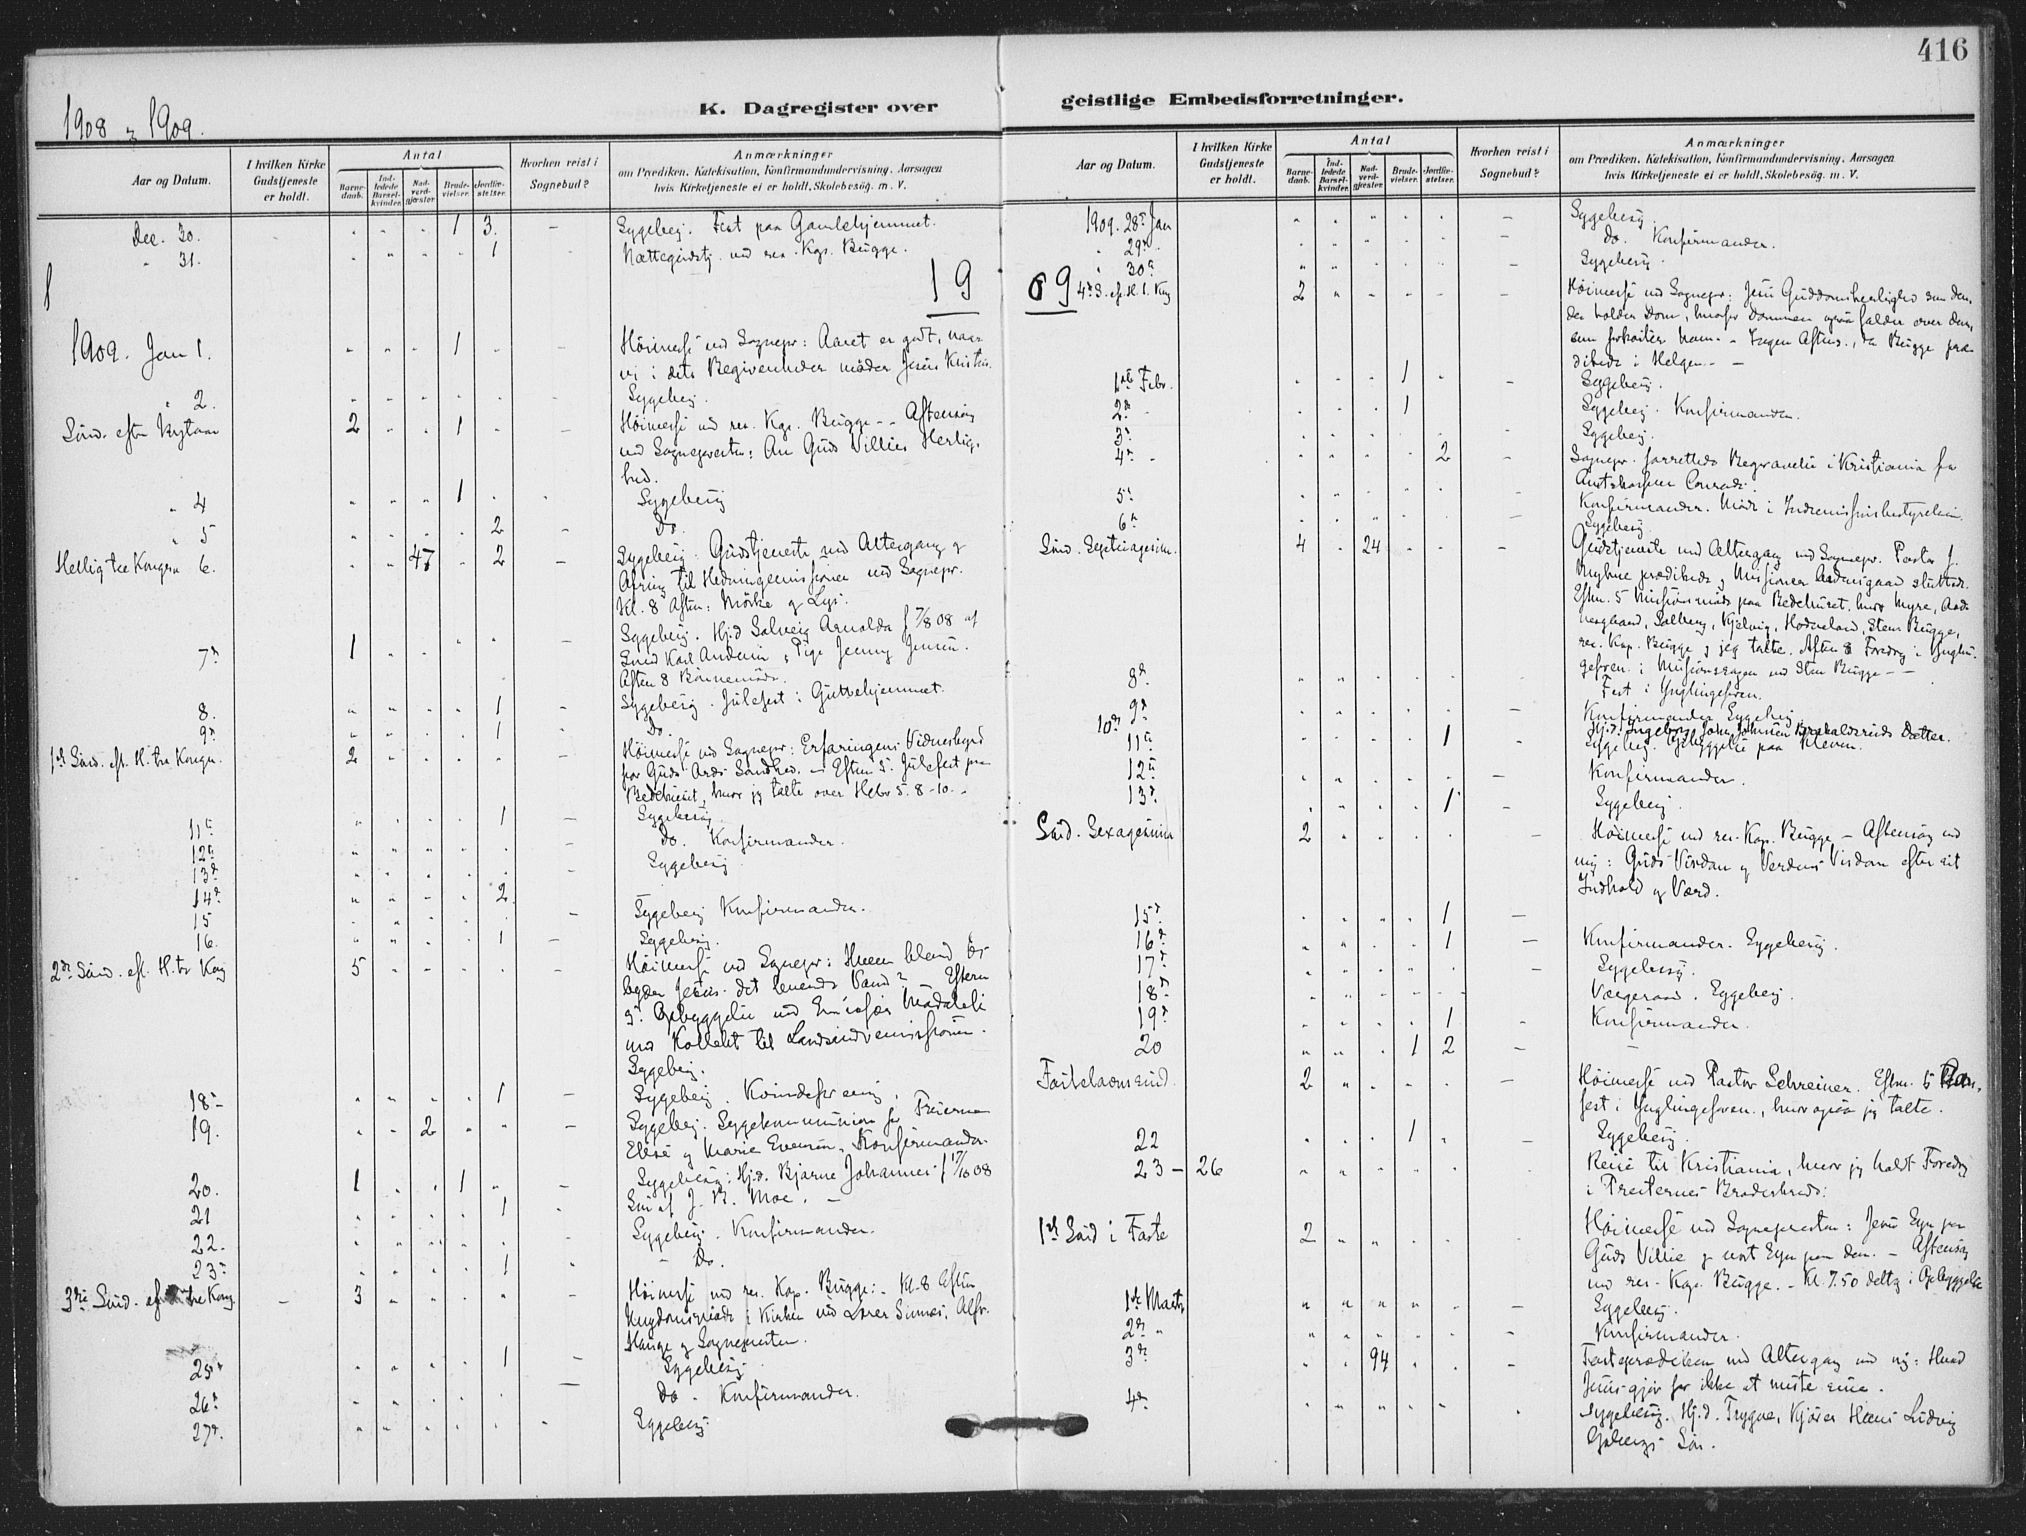 416
1908 & 1909.
K. Dagregister over
Aar og Datum.
I hvilken Kirke Gudstjeneste er holdt.
Antal
Barnedaab.
Indledede Barselkvinder.
Nadverdgjæster.
Brudevielser.
Jordfæstelser.
Hvorhen reist i Sognebud?
Anmærkninger
om Prædiken, Katekisation, Konfirmandundervisning, Aarsagen
hvis Kirketjeneste ei er holdt, Skolebesög. m. V.
Dec. 30. 1 3. Sygebesøg. Fest paa Gamlehjemmet.
" 31. 1 ved res. Kap. Bugge.
19
1909. Jan 1. 1 Høimesse ved Sognepr: Aaret er godt, naar
vi i dets Begivenheder møder Jesus Kristus.
" 2. Sygebesøg.
Sönd. efter Nytaar 2 1 Høimesse ved res. Kap. Bugge -- Aftensang
ved Sognepresten: Guds Villies Herlig-
hed.
" 4 1 Sygebesøg
" 5 2 Do.
Hellig tre Konger 6. 47 2 Sygebesøg. Gudstjeneste med Altergang og
Ofring til Hedningemissionen ved Sognepr.
Kl. 8 Aften: Mørke og Lys.
7de 1 Sygebesøg. Hj.d Solveig Arnolda f 7/8 08 af
Smed Karl Andersen, Pige Jenny Jensen.
Aften 8 Bønnemøde.
8. 1 Sygebesøg. Julefest i Guttehjemmet.
9de 1 Do.
1ste Sönd. eft. H. tre Konger. 2 Høimesse ved Sognepr: Erfaringens Vidnesbyrd
for Guds Ords Sandhed. - Eftm 5. Julefest paa
Bedehuset, hvor jeg talte over Hebr 5. 8-10. -
11te 1 Sygebesøg
12te Do. Konfirmander.
13de Sygebesøg
14de 2
15 Sygebesøg Konfirmander.
16. 1 Sygebesøg.
2den Sönd. eft. H. tr Kong 5 Høimesse ved Sognepr: Hvem bland os
Jesus det levende Vand? Efterm
5. Opbyggelse ved
med Kollekt til
Sygebesøg.
18 - 1 Sygebesøg. Kvindeforening.
19. 2 Sygebesøg. Sygekommunion for
Elise og Marie Evensen. Konfirmander.
20. 1 1 Sygebesøg: Hj.d. Bjarne Johannes f 17/10 08
Søn af J. B. Moe. -
21 1
22. Sygebesøg. Konfirmander.
23de 1 - Do.
3die Sönd. ef tre Kong. 3 Høimesse ved res. Kap. Bugge: - Kl. 8 Aften
Ungdomsmøde i Kirken ved Lærer Alfr.
Hauge og Sognepresten.
25de 1 Sygebesøg.
26de Do. Konfirmander.
27de. Sygebesøg.
geistlige Embedsforretninger.
Aar og Datum.
I hvilken Kirke Gudstjeneste er holdt.
Antal
Barnedaab.
Indledede Barselkvinder.
Nadverdgjæster.
Brudevielser.
Jordfæstelser.
Hvorhen reist i Sognebud?
Anmærkninger
om Prædiken, Katekisation, Konfirmandundervisning, Aarsagen
hvis Kirketjeneste ei er holdt, Skolebesög. m. V.
1909. 28de Jan Sygebesøg.
" 29de Do. Konfirmander.
" 30te Sygebesøg.
09
4de S. ef. H. t. Kong 2 Høimesse ved Sognepr: Jesu Guddomsherlighed som den,
der holder Dom, hvorfor Dommen ogsaa falder over den,
som forkaster ham. - Ingen Aftens., da Bugge præ-
dikede i Helgen. -
1ste Febr. 1 Sygebesøg.
2den - 1 Sygebesøg. Konfirmander.
3die Sygebesøg.
4de - 2 Sognepr. forrettede Begravelse i Kristiania for
Amtskasserer Conradi.
5te Konfirmander. Møde i Indremissionsbestyrelsen.
6te Sygebesøg.
Sönd. Septuagesim. 4 24 Gudstjeneste med Altergang ved Sognepr. Pastor J.
Myhre prædikede, Missionær sluttede.
Eftm. 5 Missionsmøde paa Bedehuset, hvor Myre,
Solberg, Kjelvig, Sten Bugge,
res. Kap. Bugge og jeg talte. Aften 8 Foredrag i Yngl.
geforen. i Missionssagen ved Sten Bugge - -
8de Fest i Ynglingeforen.
9de Konfirmander Sygebesøg
10de Hj.d. Ingeborg, Johan Johnsen Datter.
11te 1 Sygebesøg. Opbyggelse paa Kleven.
12te Konfirmander.
13de 1 Sygebesøg.
Sönd. Sexagesima 2 Høimesse ved res. Kap. Bugge - Aftensang ved
mig: Guds Visdom og Verdens Visdom efter sit
Indhold og Værd.
15de 1
16de 1 Konfirmander. Sygebesøg.
17de Sygebesøg.
18de Værgeraad. Sygebesøg.
19de 1 Konfirmander.
20 1 2 -
Fastelavnssönd. 2 Høimesse ved Pastor Schreiner. Eftm. 5
fest i Ynglingeforen., hvor ogsaa jeg talte.
22 1 Sygebesøg.
23 - 26 Reise til Kristiania, hvor jeg holdt Foredrag
i Presternes Broderkreds.
1ste Sönd i Faste 2 Høimesse ved Sognepresten: Jesu Syn paa
Guds Villie og vort Syn paa den. - Aftensang
ved res. Kap. Bugge. - Kl. 7.50 deltog i Opbyggelse
1ste Marts Sygebesøg.
2den " Konfirmander.
3die 94 Fasteprædiken med Altergang ved mig: Hvad
Jesus gjør for ikke at miste sine.
4de Sygebesøg. Hj.d. Trygve, Kjører Hans Ludvig
Søn.